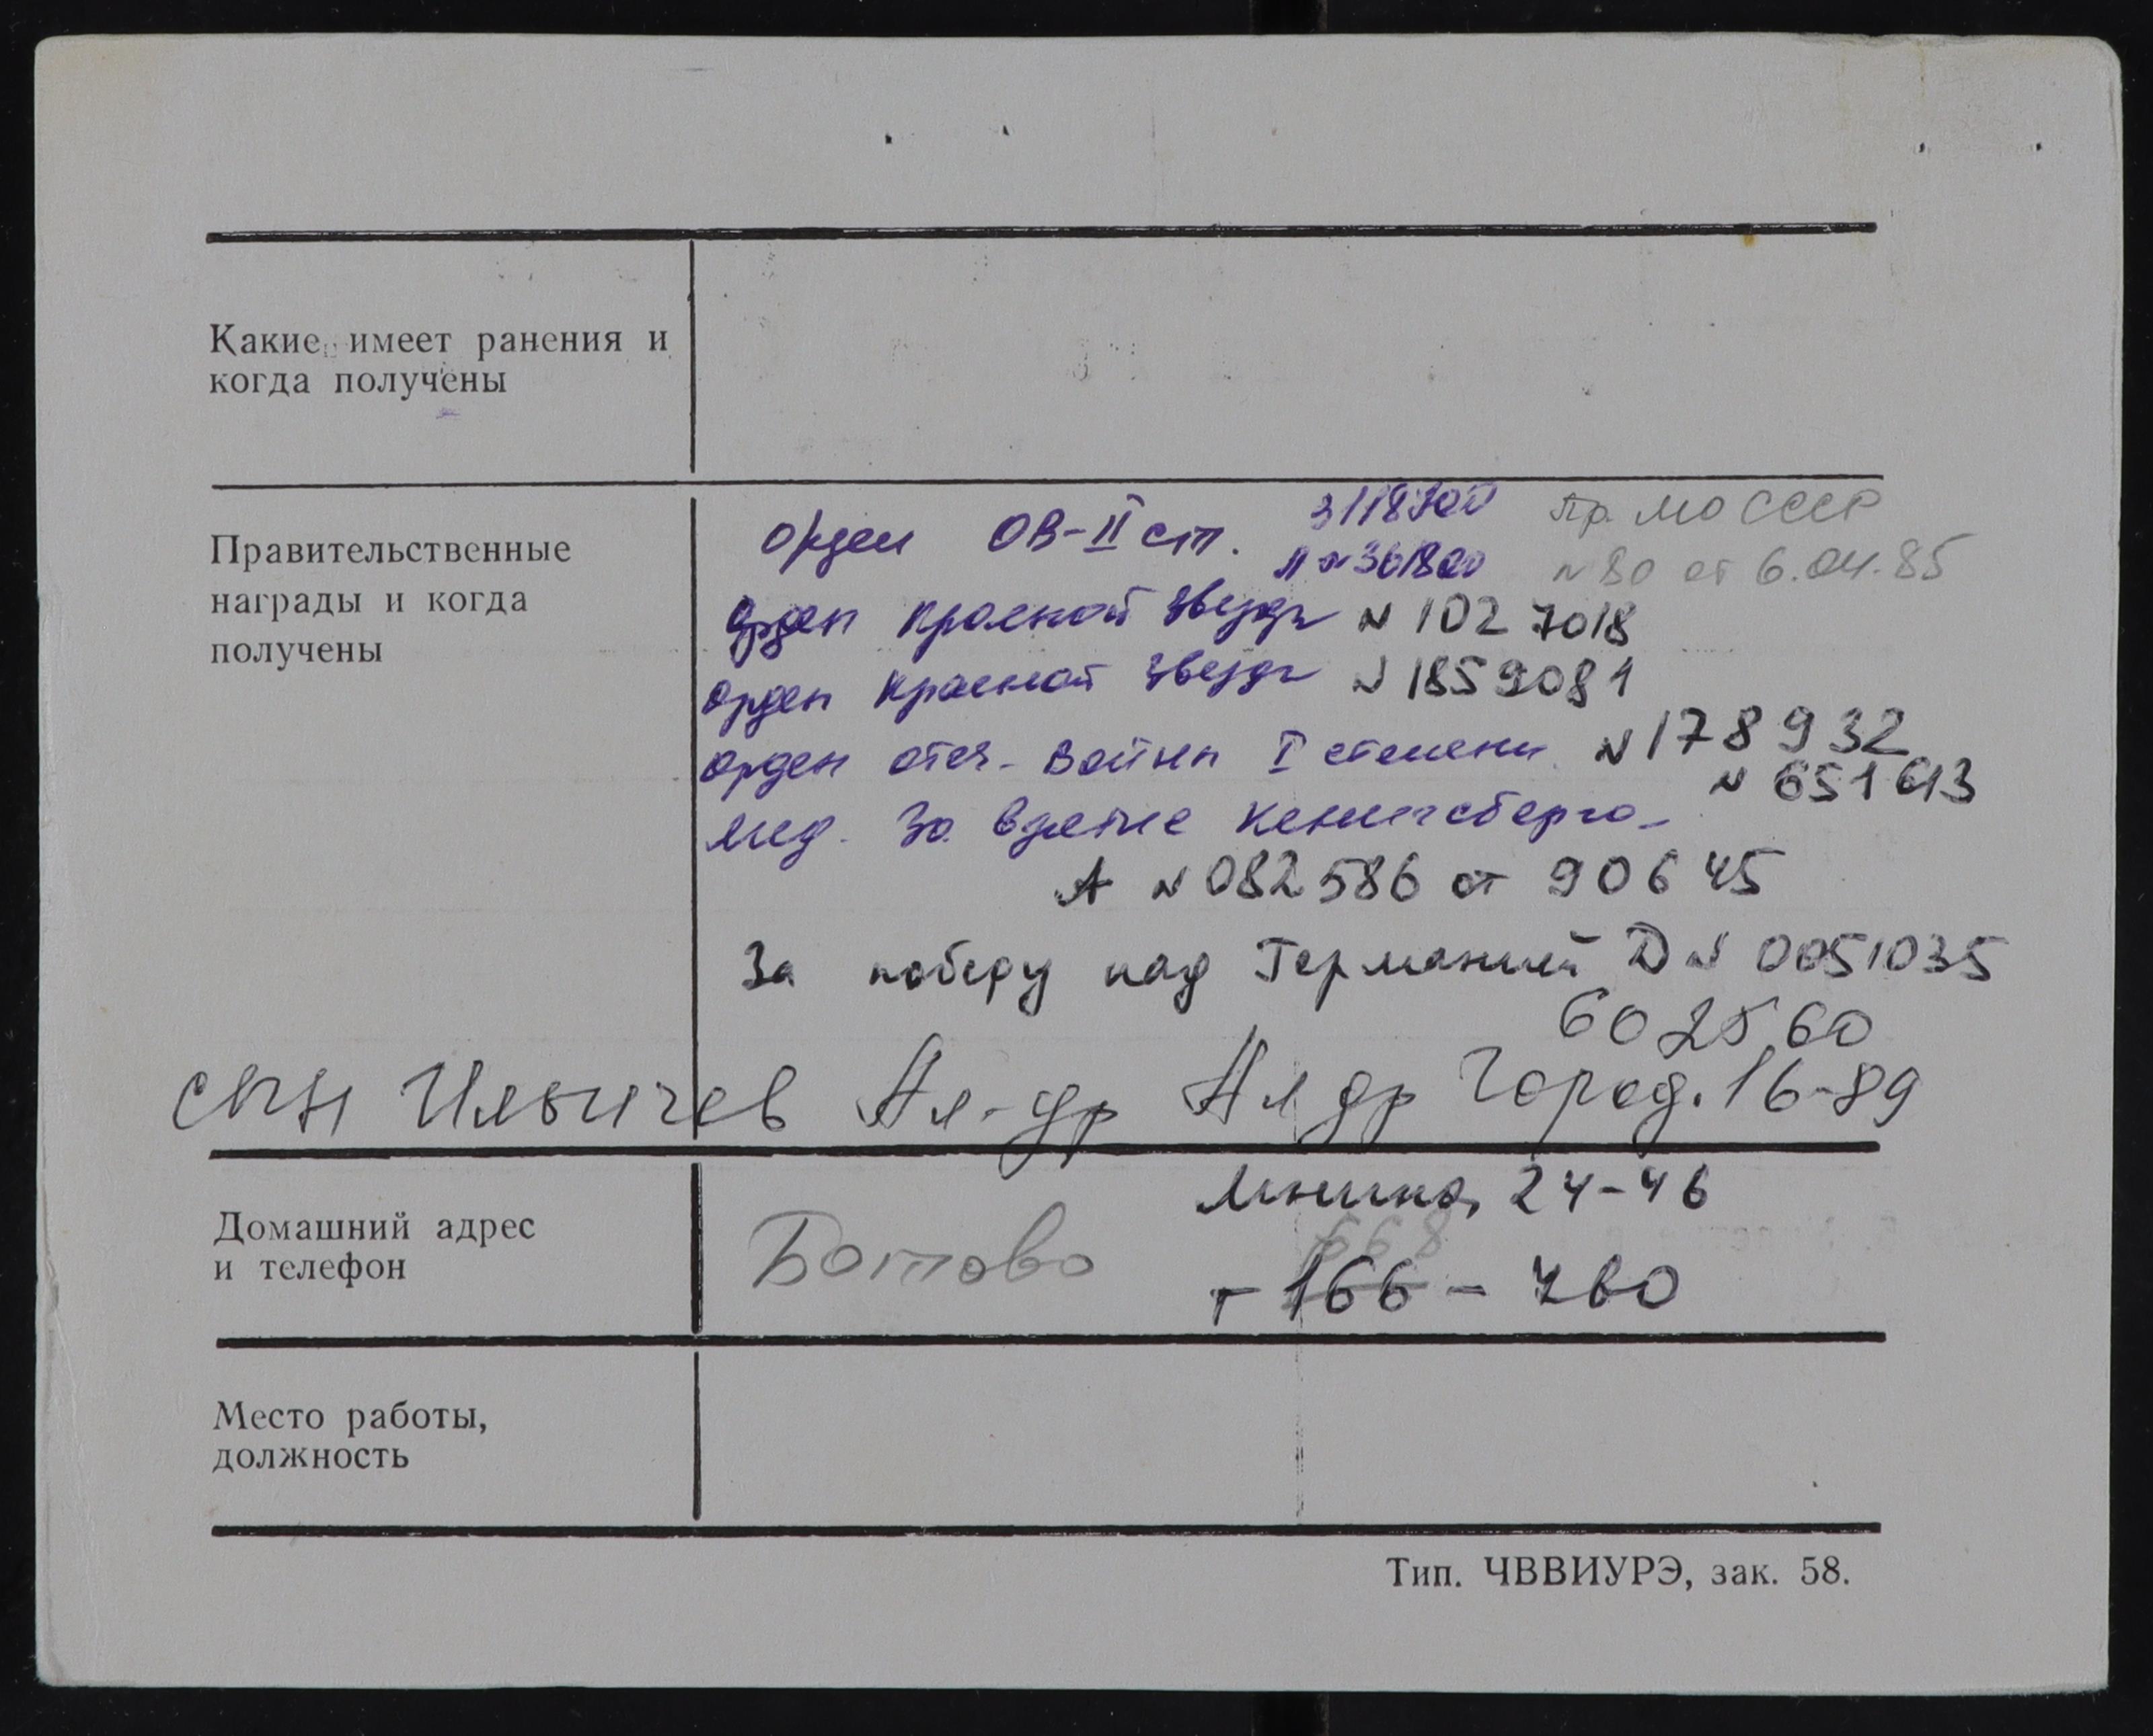 Какие имеет ранения и
когда получены
Правительственные
награды и когда
получены
Орден ОВ-II ст. 3118700 пр. МО СССР
№ 361800 №80 от 6.04.85
Орден Красной Звезды № 1027018
Орден Красной Звезды № 1859081
Орден отеч. войны I степени № 178932
№ 651613
мед. За взятие Кенигсберга
А № 082586 от 90645
За победу над Германией D № 0051035
602560
сын Ильичев Ал-др Ал др Город. 16-89
Домашний адрес
и телефон
Ботово
Ленина, 24-46
668
т-166-760
Место работы,
должность
Тип. ЧВВИУРЭ, зак. 58.